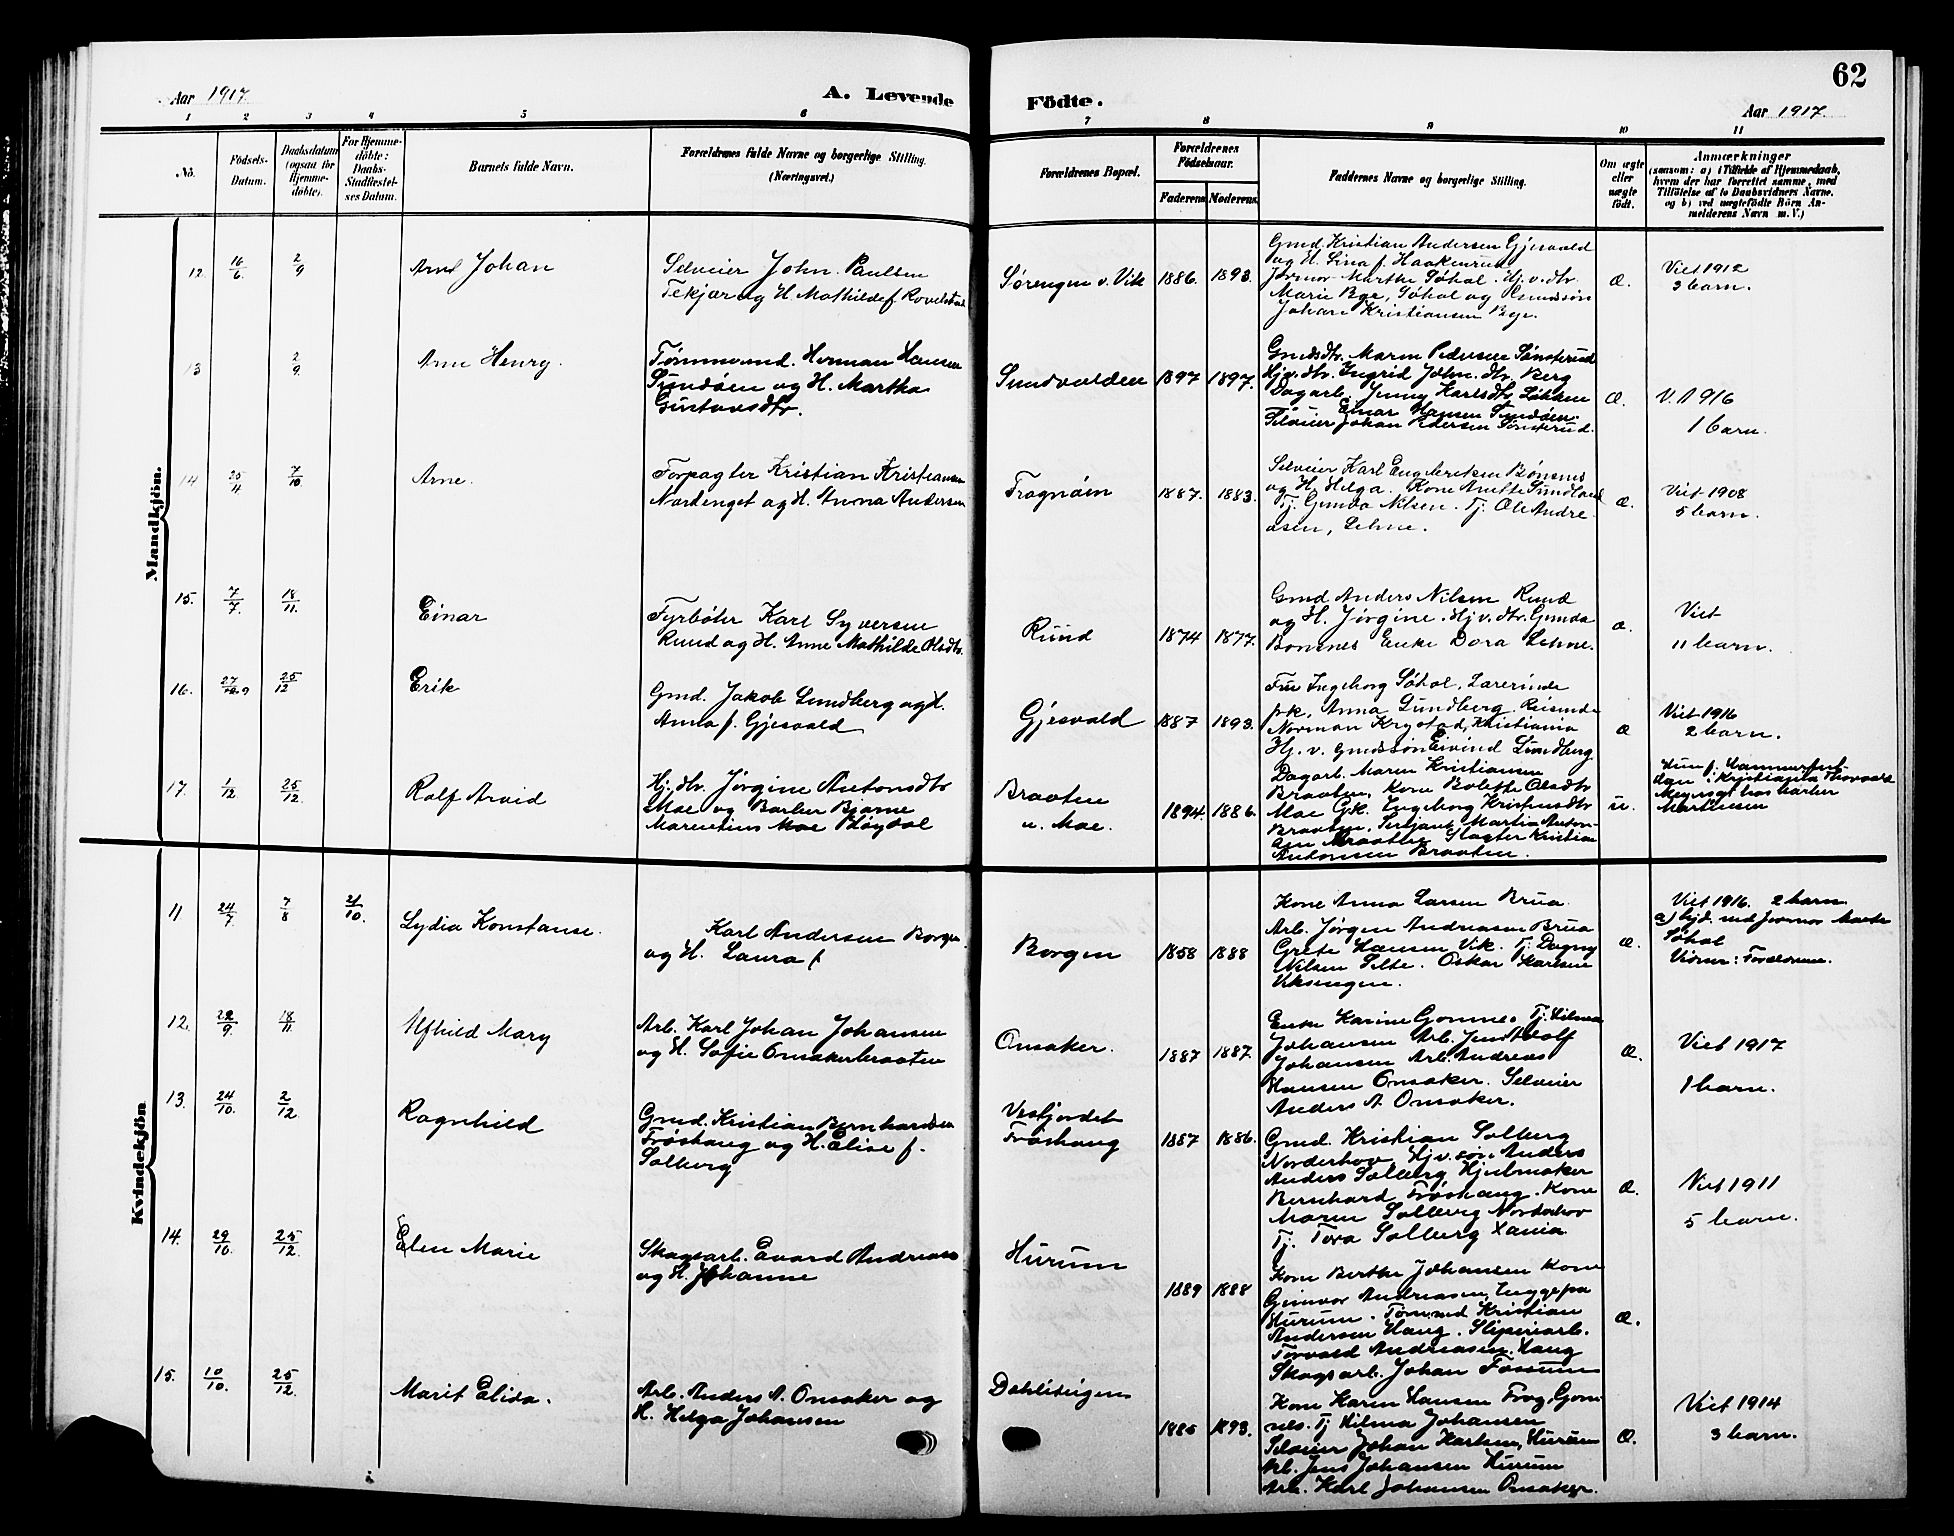 62
Aar 1917. A. Levende Födte. Aar 1917.
1 2 3 4 5 6 7 8 9 10 11
No.
Födsels-
Datum.
Daabsdatum
(ogsaa for
Hjemme-
döbte).
For Hjemme-
döbte:
Daabs-
Stadfæstel-
ses Datum.
Barnets fulde Navn.
Forældrenes fulde Navne og borgerlige Stilling.
(Næringsvei.)
Forældrenes Bopæl.
Forældrenes
Födselsaar.
Faderens Moderens
Faddernes Navne og borgerlige Stilling.
Om ægte
eller
uægte
födt.
Anmærkninger
(saasom: a) i Tilfælde af Hjemmedaab,
hvem der har forrettet samme, med
Tilföielse af to Daabsvidners Navne,
og b) ved uægtefödte Börn An-
melderens Navn m. V.)
Mandkjön.
12. 16/6 2/9
Arne Johan
Selveier John Paulsen
Tekjær og H. Mathilde f.
Sørengen v. Vik 1886. 1893.
Gmd. Kristian Andersen Gjesvold
og H. Lina f. Haakenrud
Jormor Marthe Søhol. Hj.v.dtr.
Marie Bye, Søhol og Gmdssøn
Johan Kristiansen Bye.
Æ.
Viet 1912
3 barn.
13 2/9.
Arne Henry.
Tømmermd. Herman Hansen
Sundøen og H. Martha
Gustavsdtr.
Sundvolden 1897 1897.
Gmdsdtr. Maren Pedersen Sønsterud
Hj.v.dtr. Ingrid John.dtr. Berg
Dagarb. Jenny Karlsdtr. Løkken
Einar Hansen Sundøen.
Selveier Johan Pedersen Sønsterud.
Æ.
V. 1916
1 barn.
14 25/4 7/10
Arne.
Forpagter Kristian Kristiansen
Nordenget og H. Anna Andersen
Frognøen 1887. 1883.
Selveier Karl Engebretsen Bønsnes
og H. Helga. Kone Anette Sundland
Tj. Gunda Nilsen. Tj. Ole Andre-
asen, Lehne.
Æ.
Viet 1908
5 barn.
15. 7/7. 18/11.
Einar
Fyrbøter Karl Syversen
Ruud og H. Anne Mathilde Olsdtr.
Rund 1874 1877.
Gmd Anders Nilsen Rund
og H. Jørgine. Hj.v.dtr. Gunda
Bonsnes Enke Dora Lehne.
Æ.
Viet
11 barn.
16. 27/9 25/12
Erik
Gmd. Jakob Lundberg og H.
Anna f. Gjesvold
Gjesvold 1887 1893.
Fru Ingeborg Søhol, Lærerinde
frk. Anna Lundberg. Reisende
Norman Krystad, Kristiania
Hj. v. Gmdssøn Eivind Lundberg
Æ
Viet 1916
2 barn.
17. 1/12 25/12.
Rolf Arvid
Hj. dtr. Jørgine Antonsdtr
Moe og Barber Bjarne
Marentius Moe Bløgdal
Braaten
u. Moe. 1894. 1886.
Dagarb. Maren Kristiansen
Braaten, Kone Bolette Olsdtr
Moe Gk. Ingeborg Kristensdtr
Braaten. Serjant Martin Anton-
sen Braaten Slagter Kristian
Antonsen Braaten.
u.
i Kristiania Thorvald
Meyersgt hos barber
Martinsen
Kvindekjön
11 24/7. 7/8 21/10.
Lydia Konstanse.
Karl Andersen Borgen
og H. Laura f
Borgen 1858 1888
Kone Anna Larsen Brua.
Arb. Jørgen Andreasen Brua
Grete Hansen Vik. Tj. Dagny
Nilsen Selte. Oskar Karlsen
Viksengen.
Æ.
Viet 1916. 2 barn
a) hjd. ved Jormor Marte
Søhol
Vidner: Forældrene.
12. 22/9. 18/11.
Alfhild Mary
Arb. Karl Johan Johansen
og H. Sofie Onsakerbraaten
Onsaker. 1887 1887.
Enke Karine Gomnes Tj. Hilma
Johansen Arb. Jens Adolf
Johansen Arb. Andreas
Hansen Onsaker. Selveier
Anders A. Onsaker.
Æ.
Viet 1917
1 barn.
13. 24/10. 2/12.
Ragnhild
Gmd. Kristian Bernhardsen
Frøshaug og H. Elise f.
Solberg
Vestfjordet
Frøshaug 1887 1886.
Gmd. Kristian Solberg
Norderhov Hj v. søn Anders
Anders Solberg, Hjulmaker
Bernhard Frøshaug. Kone
Maren Solberg Norderhov
Tj. Tora Solberg Xania
Æ.
Viet 1911
5 barn.
14. 29/10. 25/12.
Elen Marie
Skogsarb. Edvard Andreasen
og H. Johanne
Hurum 1889 1888
Kone Berthe Johansen Kone
Gunvor Andreasen, Lyggepa
Hurum. Tømmermd Kristian
Andersen Haug. Sliperiarb.
Torvald Andreasen, Haug
Skogsarb. Johan Fossum
Æ.
15. 10/10. 25/12.
Marit Elida.
Arb. Anders A. Onsaker og
H. Helga Johansen
Dahlstigen 1885 1893.
Kone Karen Hansen Frog, Gom-
nes. Tj Hilma Johansen
Selveier Johan Karlsen, Hurum
Arb. Jens Johansen Hurum
Arb. Karl Johansen Onsaker.
Æ.
Viet 1914
3 barn.